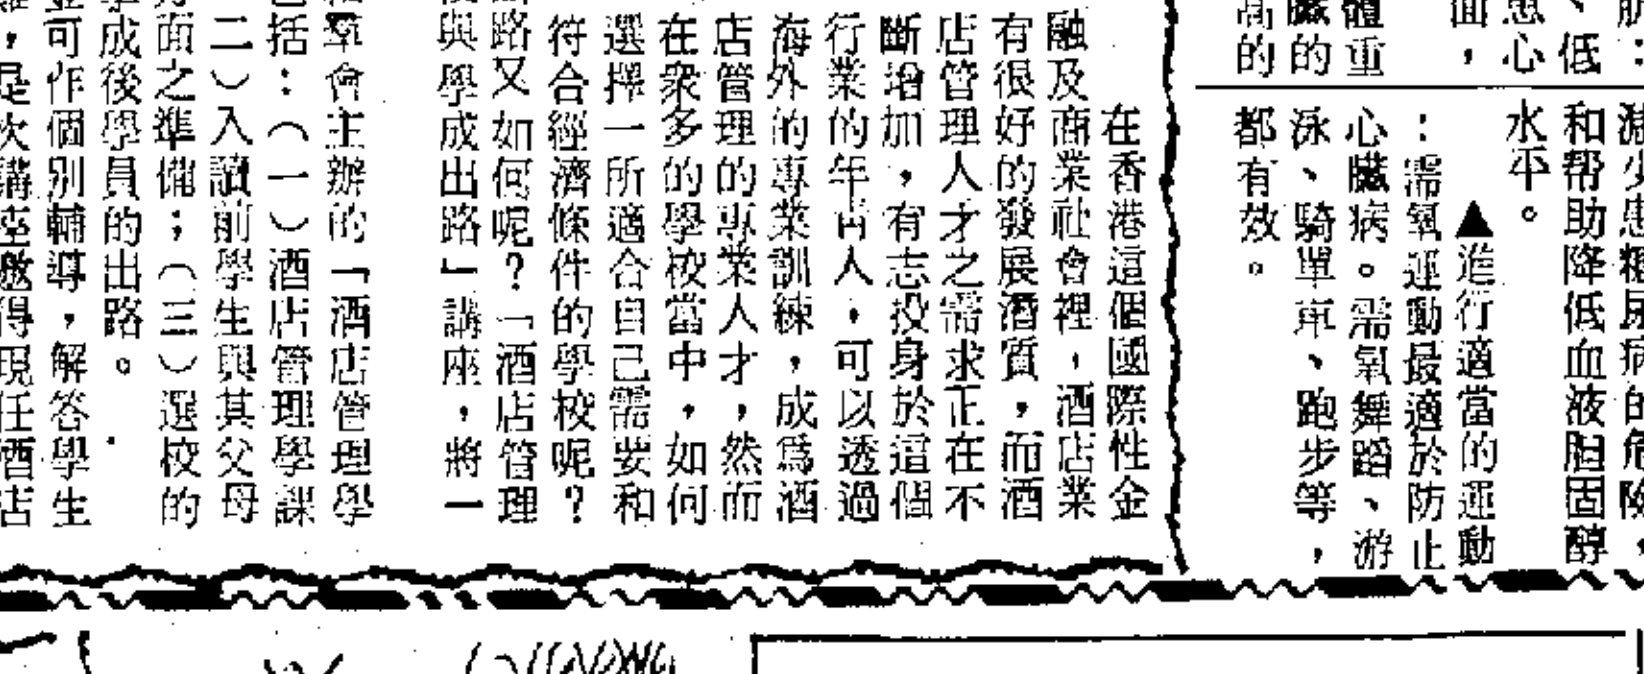 ：
、低
心
面，
體重
臟的
高的
減少患糖尿病的危險，
和帮助降低血液胆固醇
水平。
▲進行適當的運動
：需氧運動最適於防止
心臟病。需氧舞蹈、游
泳、騎單車、跑步等，
都有效。
在香港這個國際性金
融及商業社會裡，酒店業
有很好的發展酒質，而酒
店管理人才之需求正在不
斷增加，有志投身於這個
行業的年青人，可以透過
海外的專業訓練，成爲酒
店管理的專業人才，然而
在衆多的學校當中，如何
選擇一所適合自己需要和
符合經濟條件的學校呢？
路又如何呢？「酒店管理
與學成出路」講座，將一
羣會主辦的「酒店管理學
括：（一）酒店管理學課
二）入讀前學生與其父母
面之準備；（三）選校的
成後學員的出路。
可作個別輔導，解答學生
，是次講座邀得現任酒店